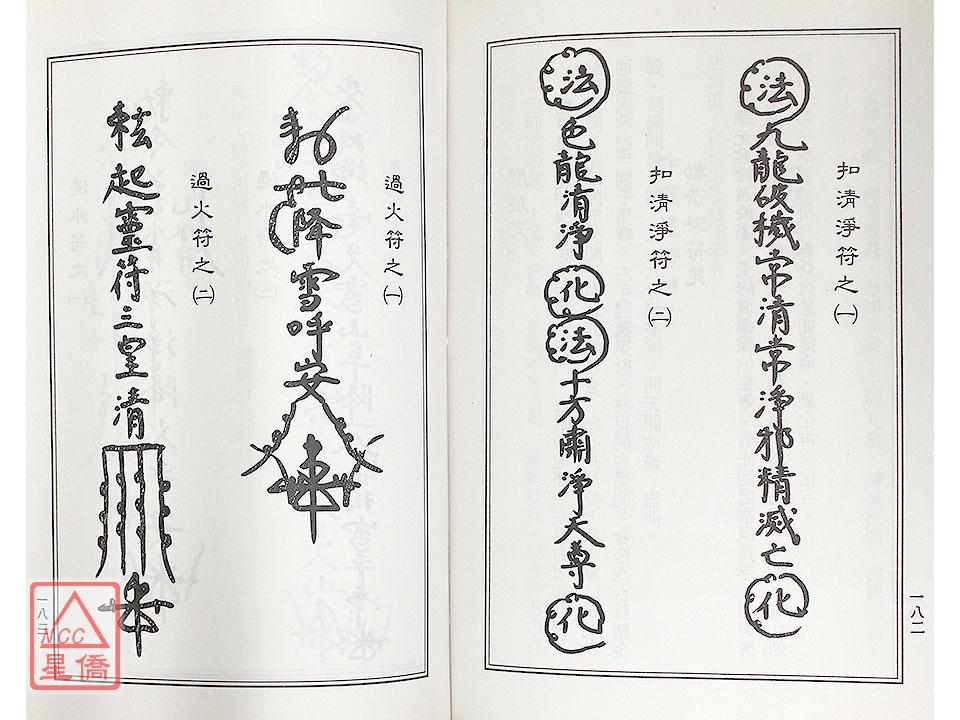 扣清淨符之㈠
法九龍破穢常清常淨邪精滅亡化
扣清淨符之㈡
法色龍清淨化法十方肅淨天尊化
一八二
過火符之㈠
降雪呼安
過火符之㈡
起靈符三皇清
一八三
MCC
星僑